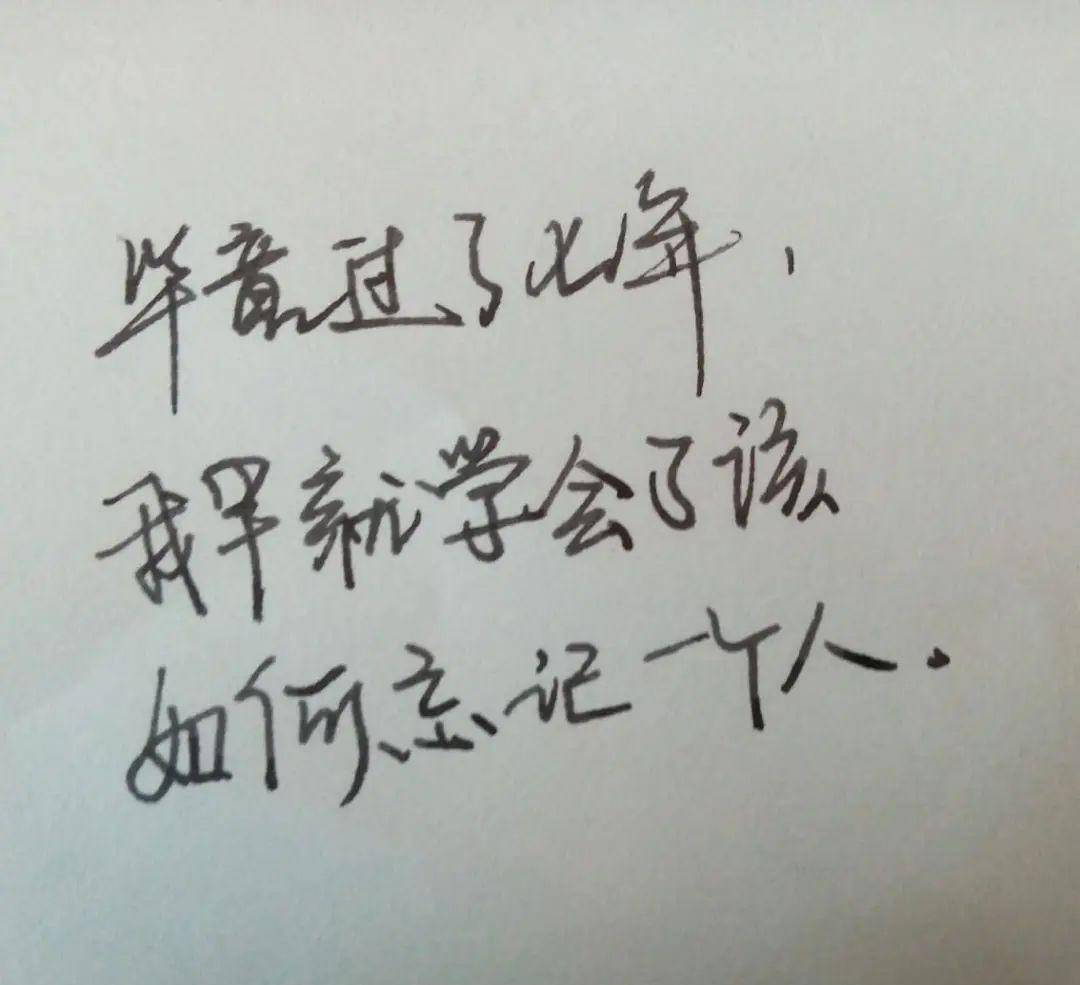 毕竟过了年，
我早就学会了该
如何忘记一个人.